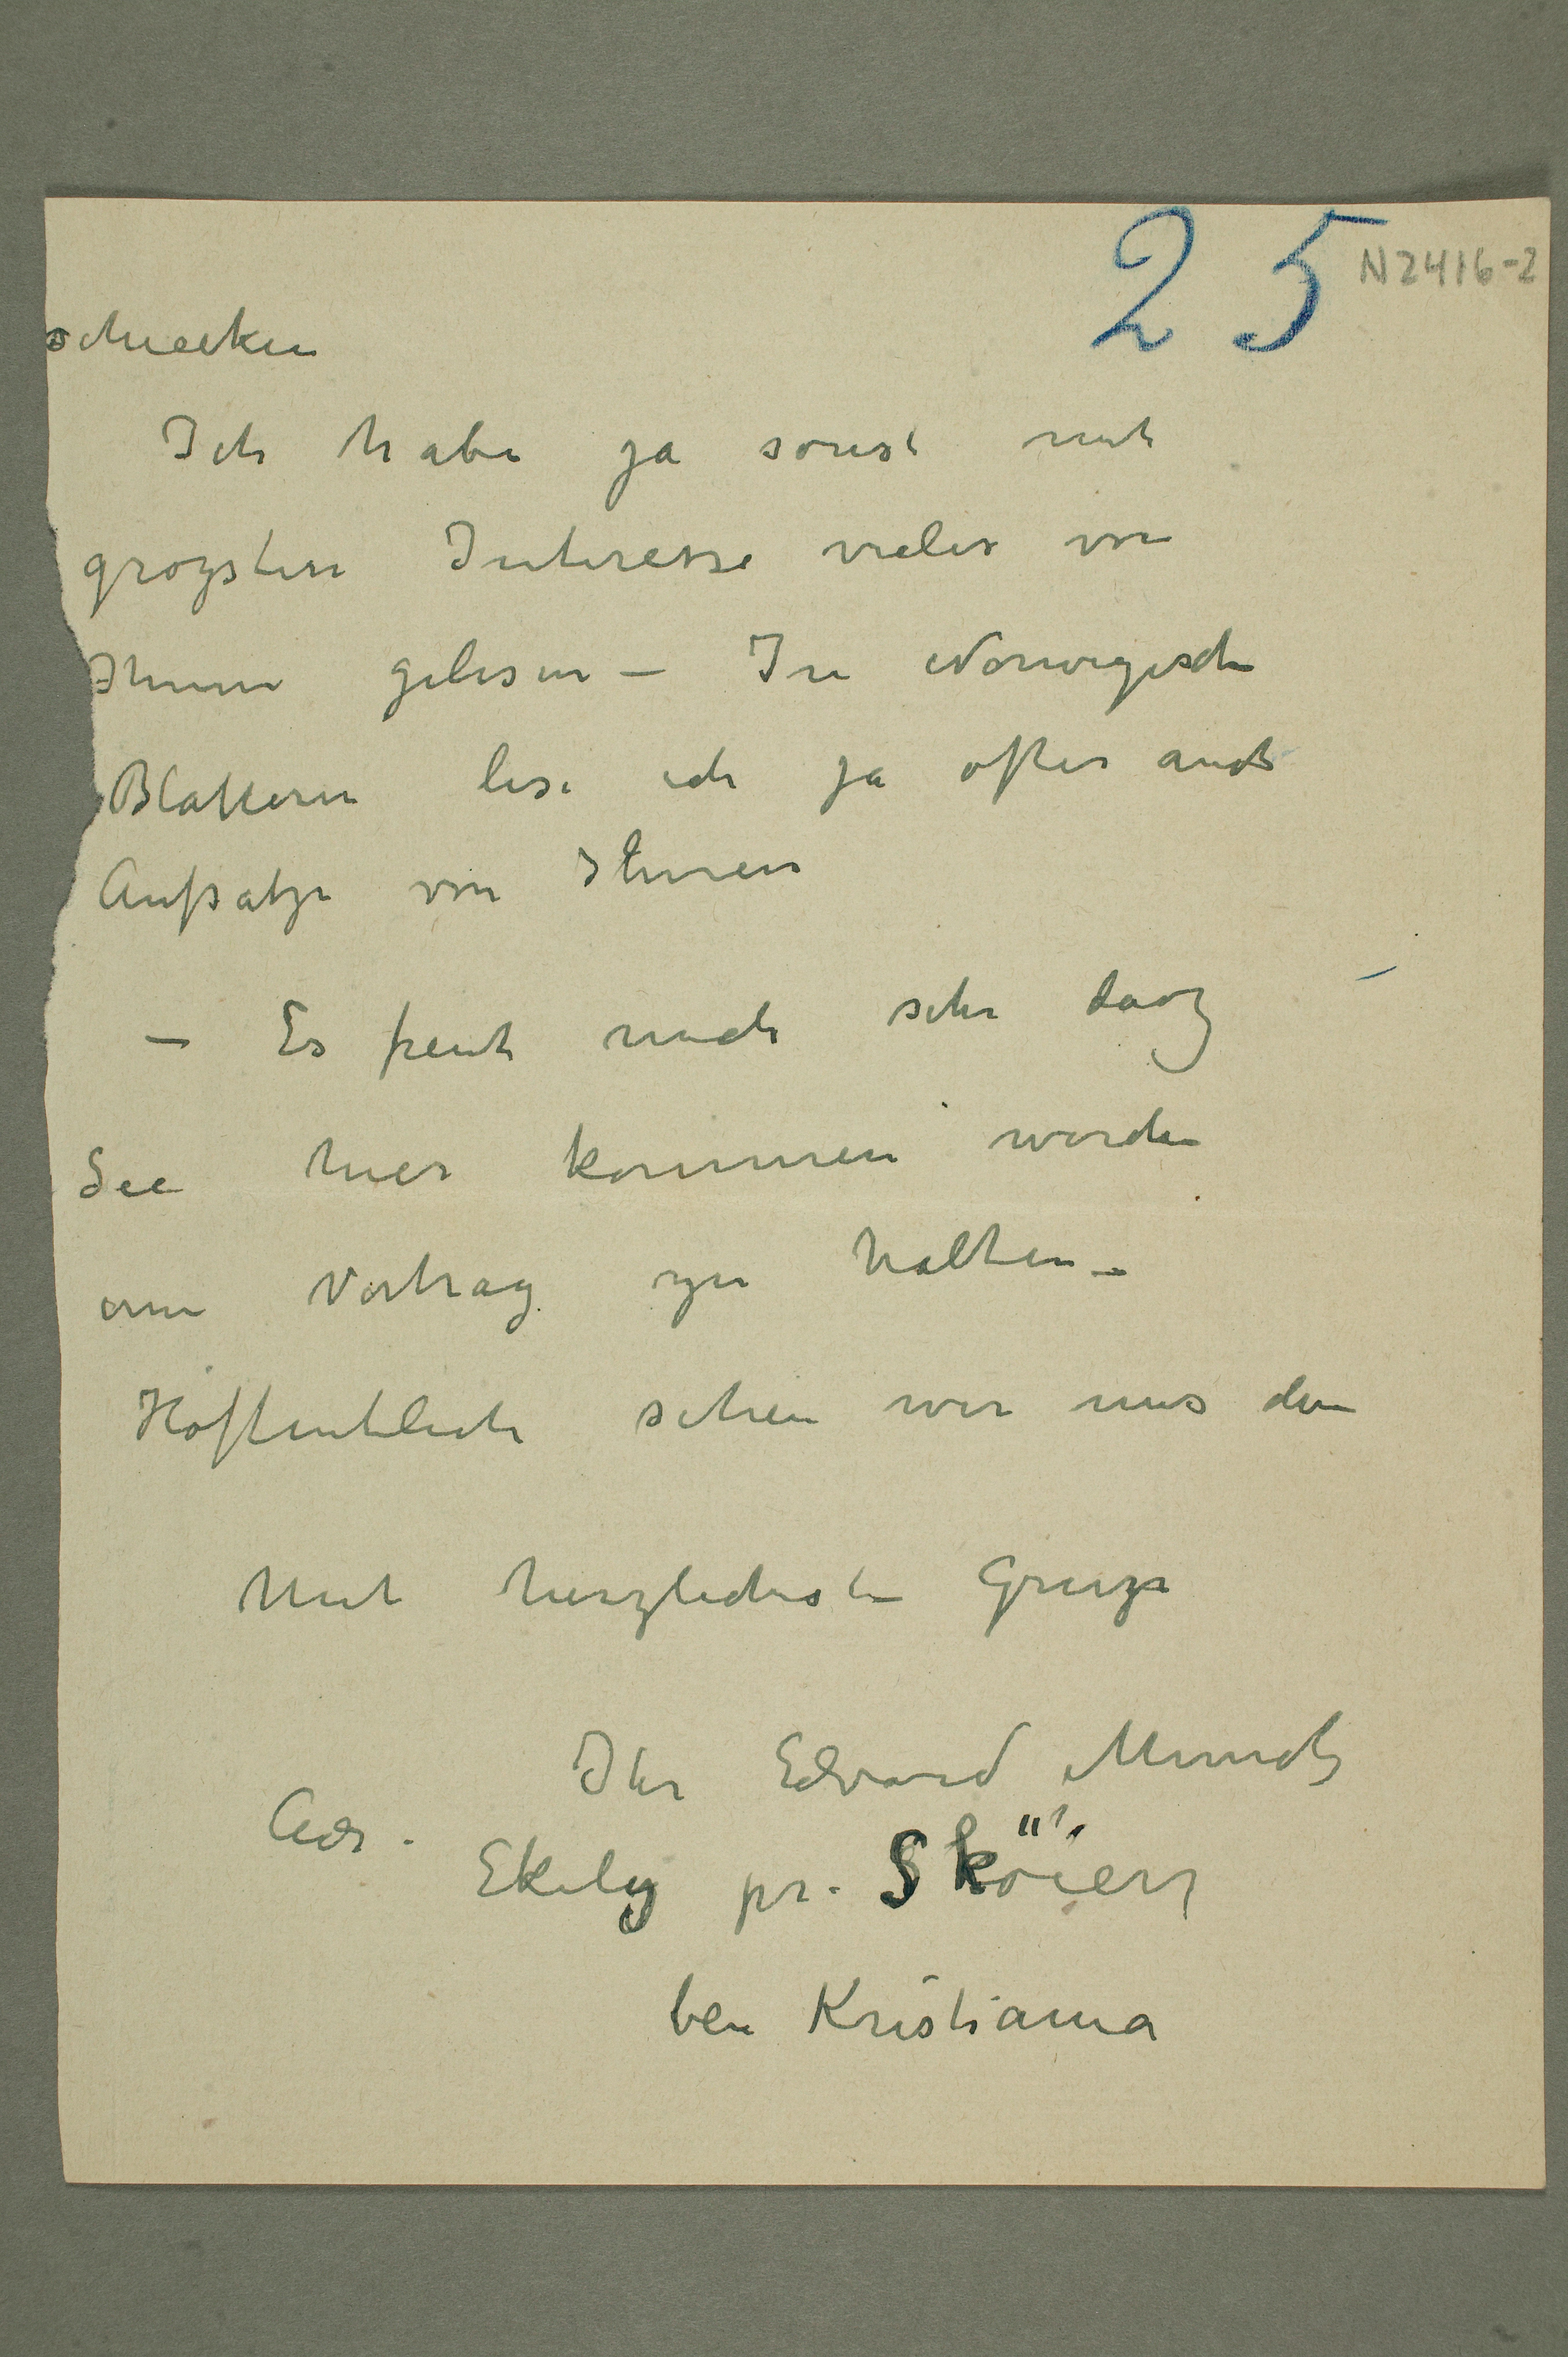 25 N2416-2
schicken
Ich habe ja sonst mit
grozsten Interesse vieles von
Ihnen gelesen – In Norwegische
Blattern lese ich ja ofter auch
Aufsatze von Ihnen
– Es freut mich sehr dasz
Sie hier kommen werden
um Vortrag zu halten –
Hoffentlich sehen wir uns dan
Mit herzlichsten Grusze
Ihr Edvard Munch
Adr.
Ekely pr. Sköien
bei Kristiania